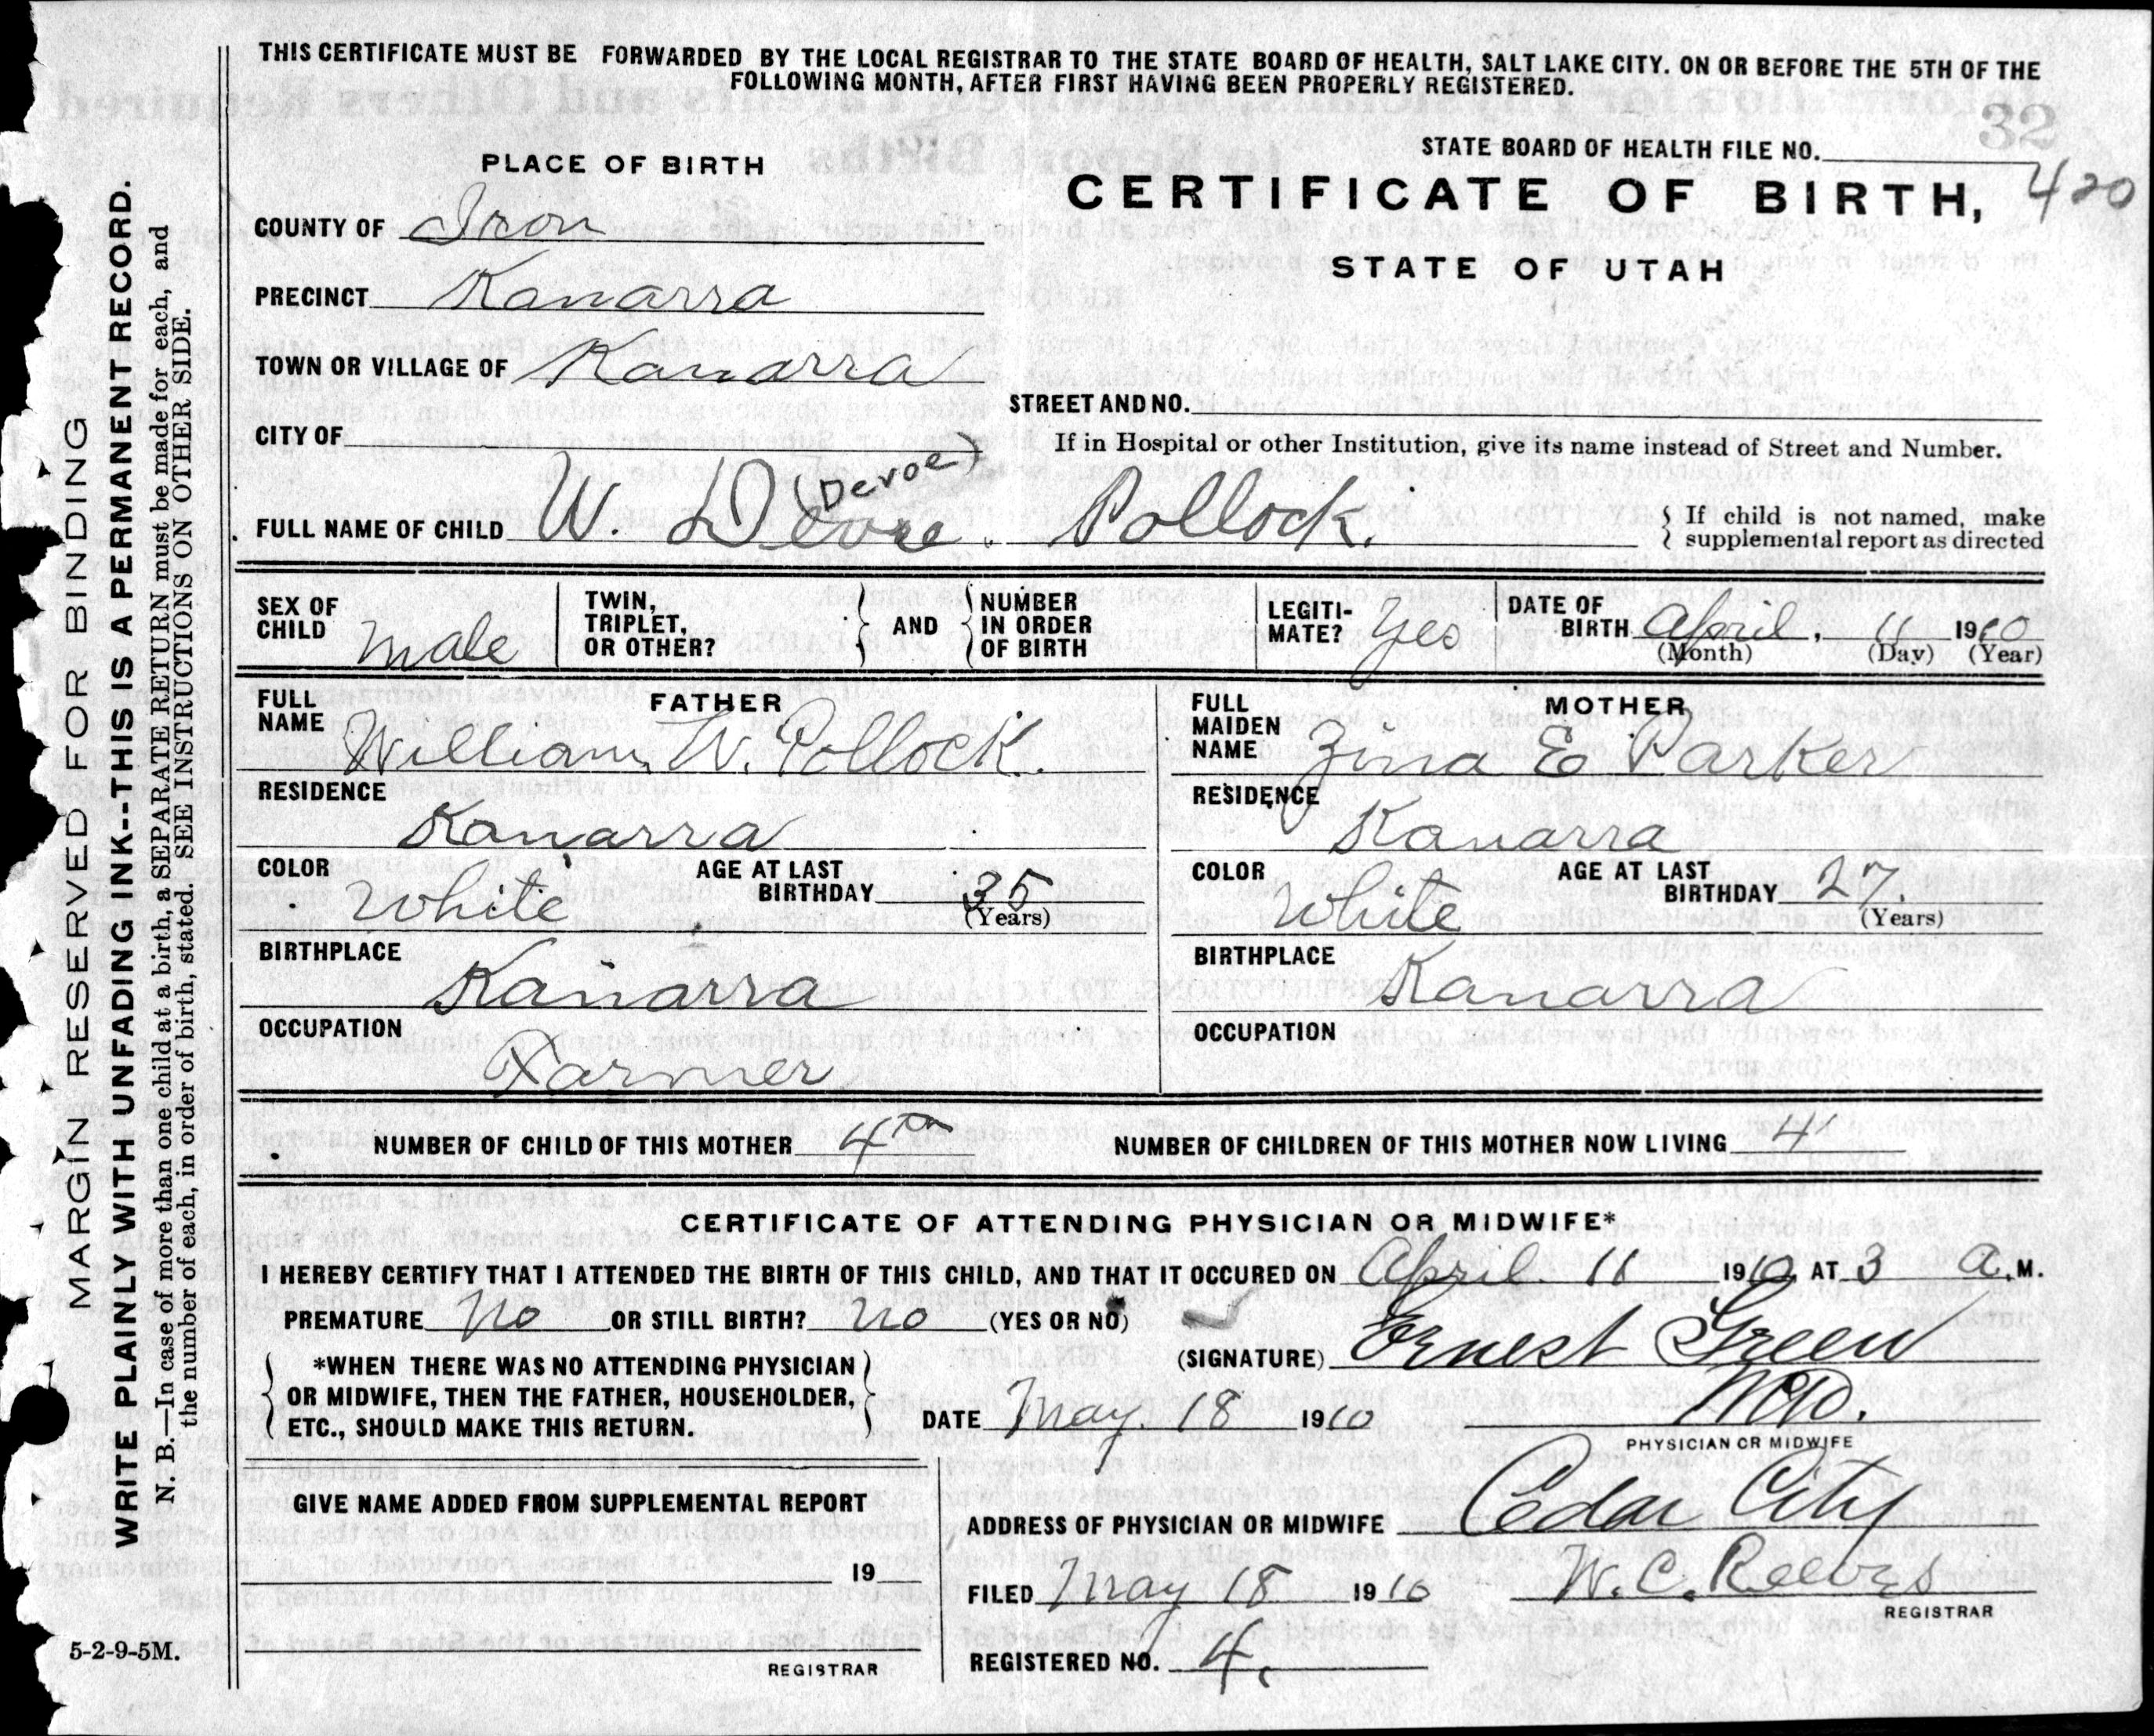 THIS CERTIFICATE MUST BE FORWARDED BY THE LOCAL REGISTRAR TO THE STATE BOARD OF HEALTH, SALT LAKE CITY. ON OR BEFORE THE 5TH OF THE
FOLLOWING MONTH, AFTER FIRST HAVING BEEN PROPERLY REGISTERED.
32
PLACE OF BIRTH
STATE BOARD OF HEALTH FILE NO.
CERTIFICATE OF BIRTH, 420
STATE OF UTAH
COUNTY OF Iron
PRECINCT Kanarra
TOWN OR VILLAGE OF Kanarra
STREET AND NO.
CITY OF
If in Hospital or other Institution, give its name instead of Street and Number.
(Devoe)
FULL NAME OF CHILD W. Pollock.
If child is not named, make
supplemental report as directed
SEX OF CHILD male
TWIN, TRIPLET, OR OTHER?
AND
NUMBER IN ORDER OF BIRTH
LEGITI-MATE? Yes
DATE OF BIRTH April, 11 1910
(Month) (Day) (Year)
FATHER
FULL NAME William W. Pollock.
RESIDENCE
Kanarra
COLOR White
AGE AT LAST BIRTHDAY 35
(Years)
BIRTHPLACE
Kanarra
OCCUPATION
Farmer
MOTHER
FULL MAIDEN NAME Zina E Parker
RESIDENCE
Kanarra
COLOR White
AGE AT LAST BIRTHDAY 27.
(Years)
BIRTHPLACE
Kanarra
OCCUPATION
NUMBER OF CHILD OF THIS MOTHER 4th
NUMBER OF CHILDREN OF THIS MOTHER NOW LIVING 4
CERTIFICATE OF ATTENDING PHYSICIAN OR MIDWIFE*
I HEREBY CERTIFY THAT I ATTENDED THE BIRTH OF THIS CHILD, AND THAT IT OCCURED ON April 11 1910 AT 3 a.M.
PREMATURE No OR STILL BIRTH? no (YES OR NO)
*WHEN THERE WAS NO ATTENDING PHYSICIAN
OR MIDWIFE, THEN THE FATHER, HOUSEHOLDER,
ETC., SHOULD MAKE THIS RETURN.
(SIGNATURE) Ernest Green
DATE May. 18 1910
MD.
PHYSICIAN OR MIDWIFE
GIVE NAME ADDED FROM SUPPLEMENTAL REPORT
19
REGISTRAR
ADDRESS OF PHYSICIAN OR MIDWIFE Cedar City
FILED May 18 1910 W. C. Reeves
REGISTRAR
REGISTERED NO. 4.
5-2-9-5M.
MARGIN RESERVED FOR BINDING
WRITE PLAINLY WITH UNFADING INK--THIS IS A PERMANENT RECORD.
N. B.—In case of more than one child at a birth, a SEPARATE RETURN must be made for each, and
the number of each, in order of birth, stated. SEE INSTRUCTIONS ON OTHER SIDE.